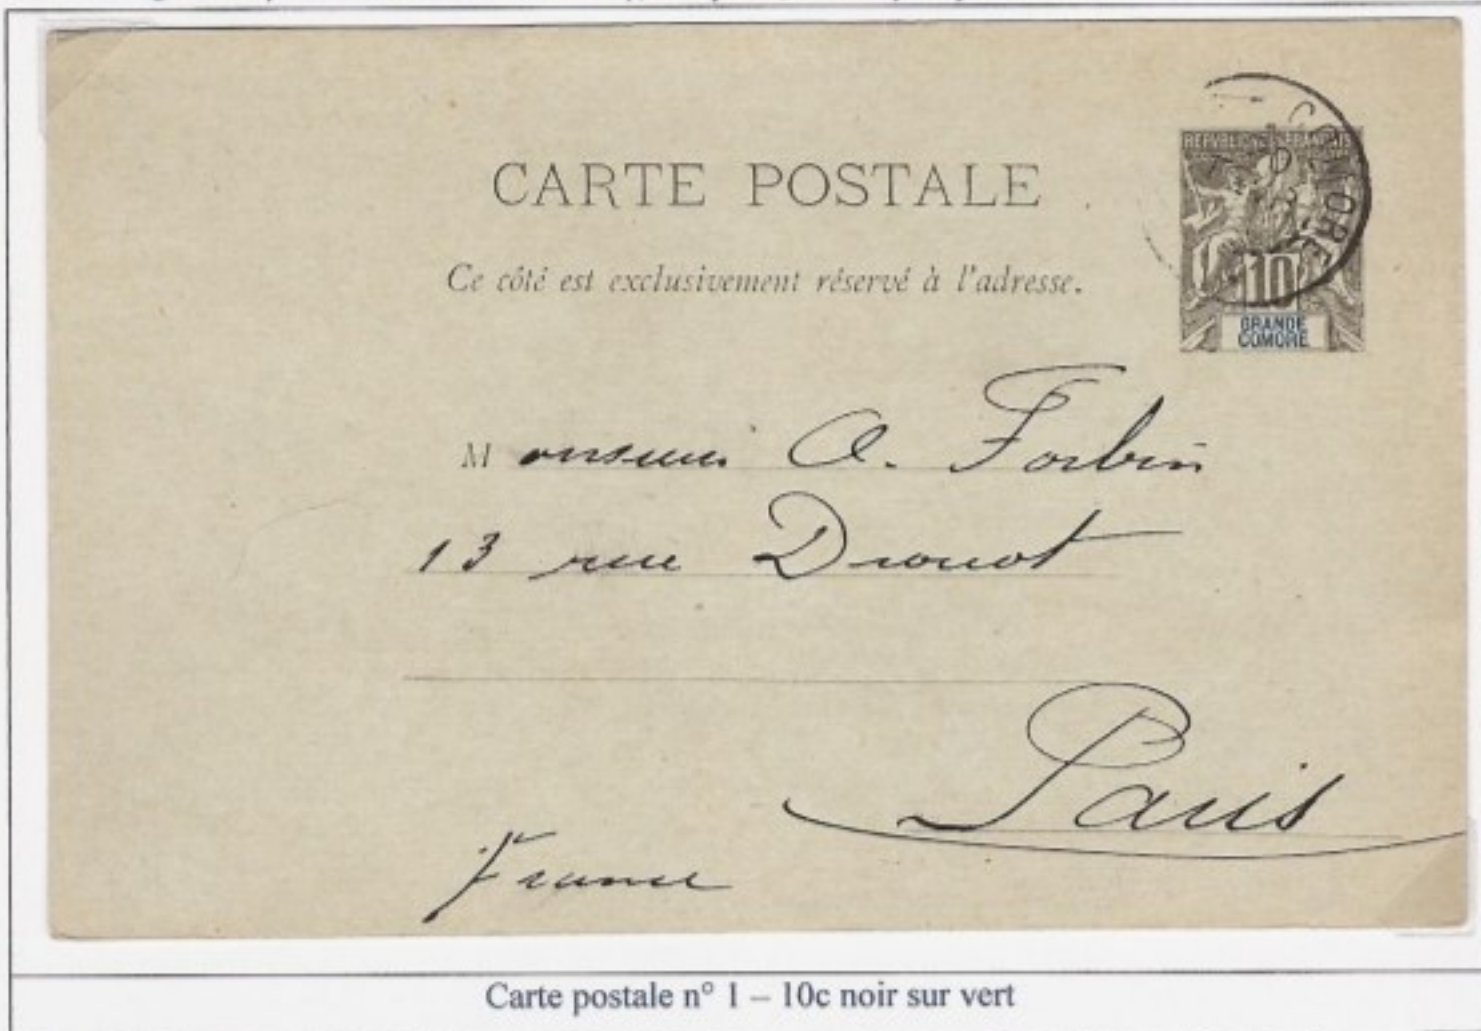 CARTE POSTALE
Ce côté est exclusivement réservé à l'adresse.
COMORE
10
GRANDE
COMORE
Monsieur A. Forbin
13 rue Drouot
Paris
France
Carte postale n° 1 – 10c noir sur vert